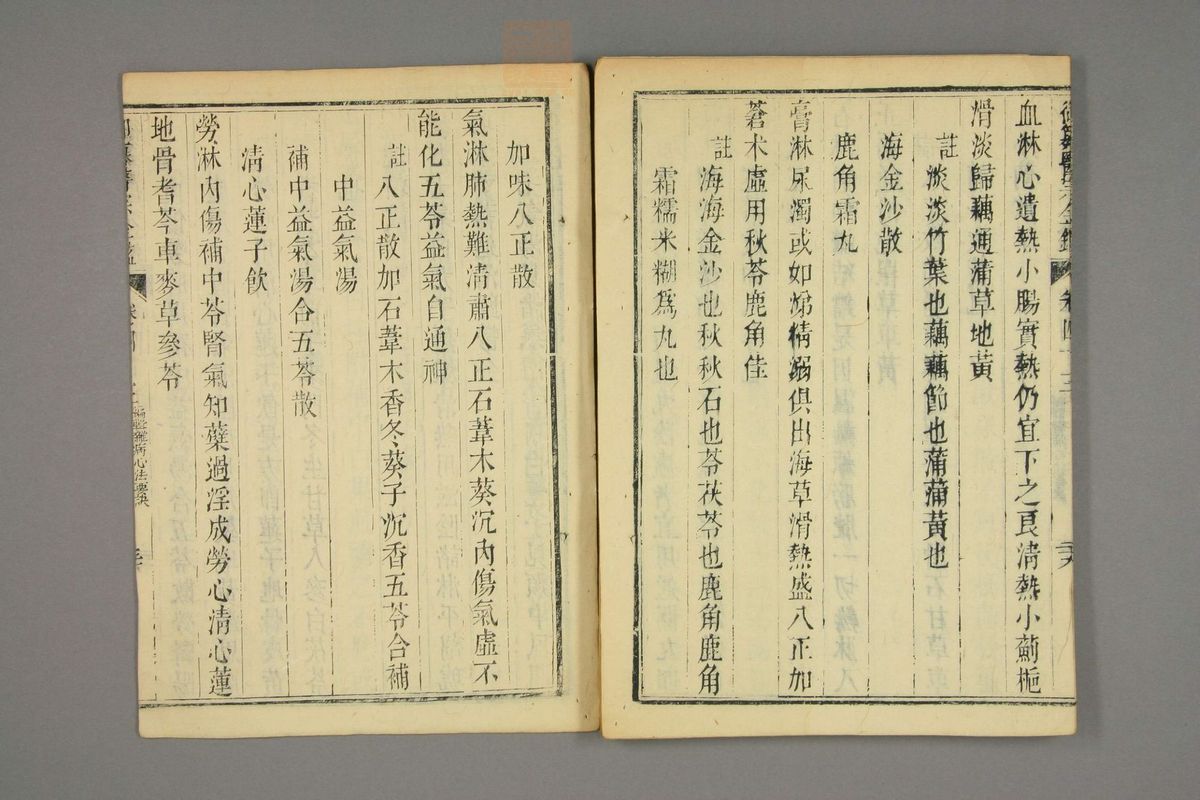 御纂醫宗金鑑 卷四十三
血淋心遺熱小腸實熱仍宜下之良清熱小薊梔
滑淡歸藕通蒲草地黃
註 淡淡竹葉也藕藕節也蒲蒲黃也
海金沙散
鹿角霜丸
膏淋尿濁或如涕精溺俱出海草滑熱盛八正加
蒼术虛用秋苓鹿角佳
註 海海金沙也秋秋石也苓茯苓也鹿角鹿角
霜糯米糊爲丸也
加味八正散
氣淋肺熱難清肅八正石葦木葵沉內傷氣虛不
能化五苓益氣自通神
註 八正散加石葦木香冬葵子沉香五苓合補
中益氣湯
補中益氣湯合五苓散
清心蓮子飲
勞淋內傷補中苓腎氣知蘗過淫成勞心清心蓮
地骨耆芩車麥草參苓
編輯雜病心法要訣